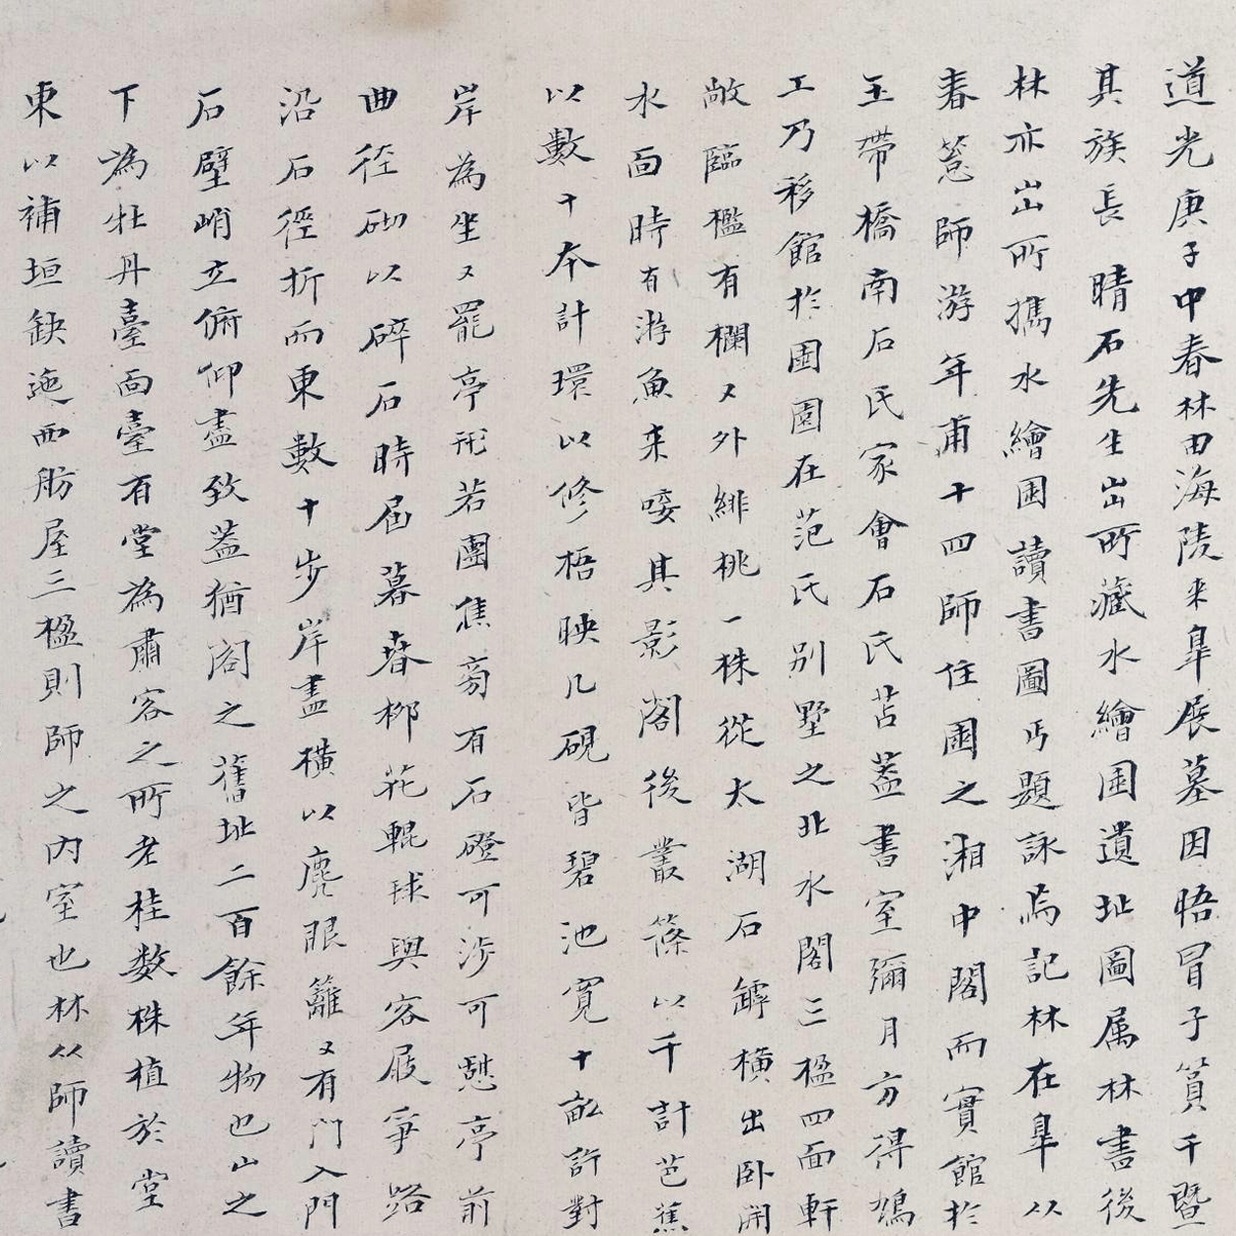 道光庚子中春林由海陵来臯展墓因晤冒子篔千暨
其族長晴石先生出所藏水繪園遺址圖属林書後
林亦出所攜水繪園讀書圖丐題詠焉記林在臯以
春薏師游年甫十四師住園之湘中閣而實館於
玉帶橋南石氏家會石氏苫蓋書室彌月方得鳩
工乃移館於園園在范氏别墅之北水閣三楹四面軒
敞臨檻有欄欄外緋桃一株從太湖石罅横出卧開
水面時有游魚来唼其影閣後叢篠以千計芭蕉
以數十本計環以修梧映几硯皆碧池寛十畝許對
岸為坐坐罷亭形若團焦旁有石磴可涉可憩亭前
曲徑砌以碎石時届暮春柳花輥球與客屐爭路
沿石徑折而東數十步岸盡横以麂眼籬籬有門入門
石壁峭立俯仰盡致蓋猶閣之舊址二百餘年物也山之
下為牡丹臺面臺有堂為肅客之所老桂数株植於堂
東以補垣缺迤西舫屋三楹則師之内室也林從師讀書